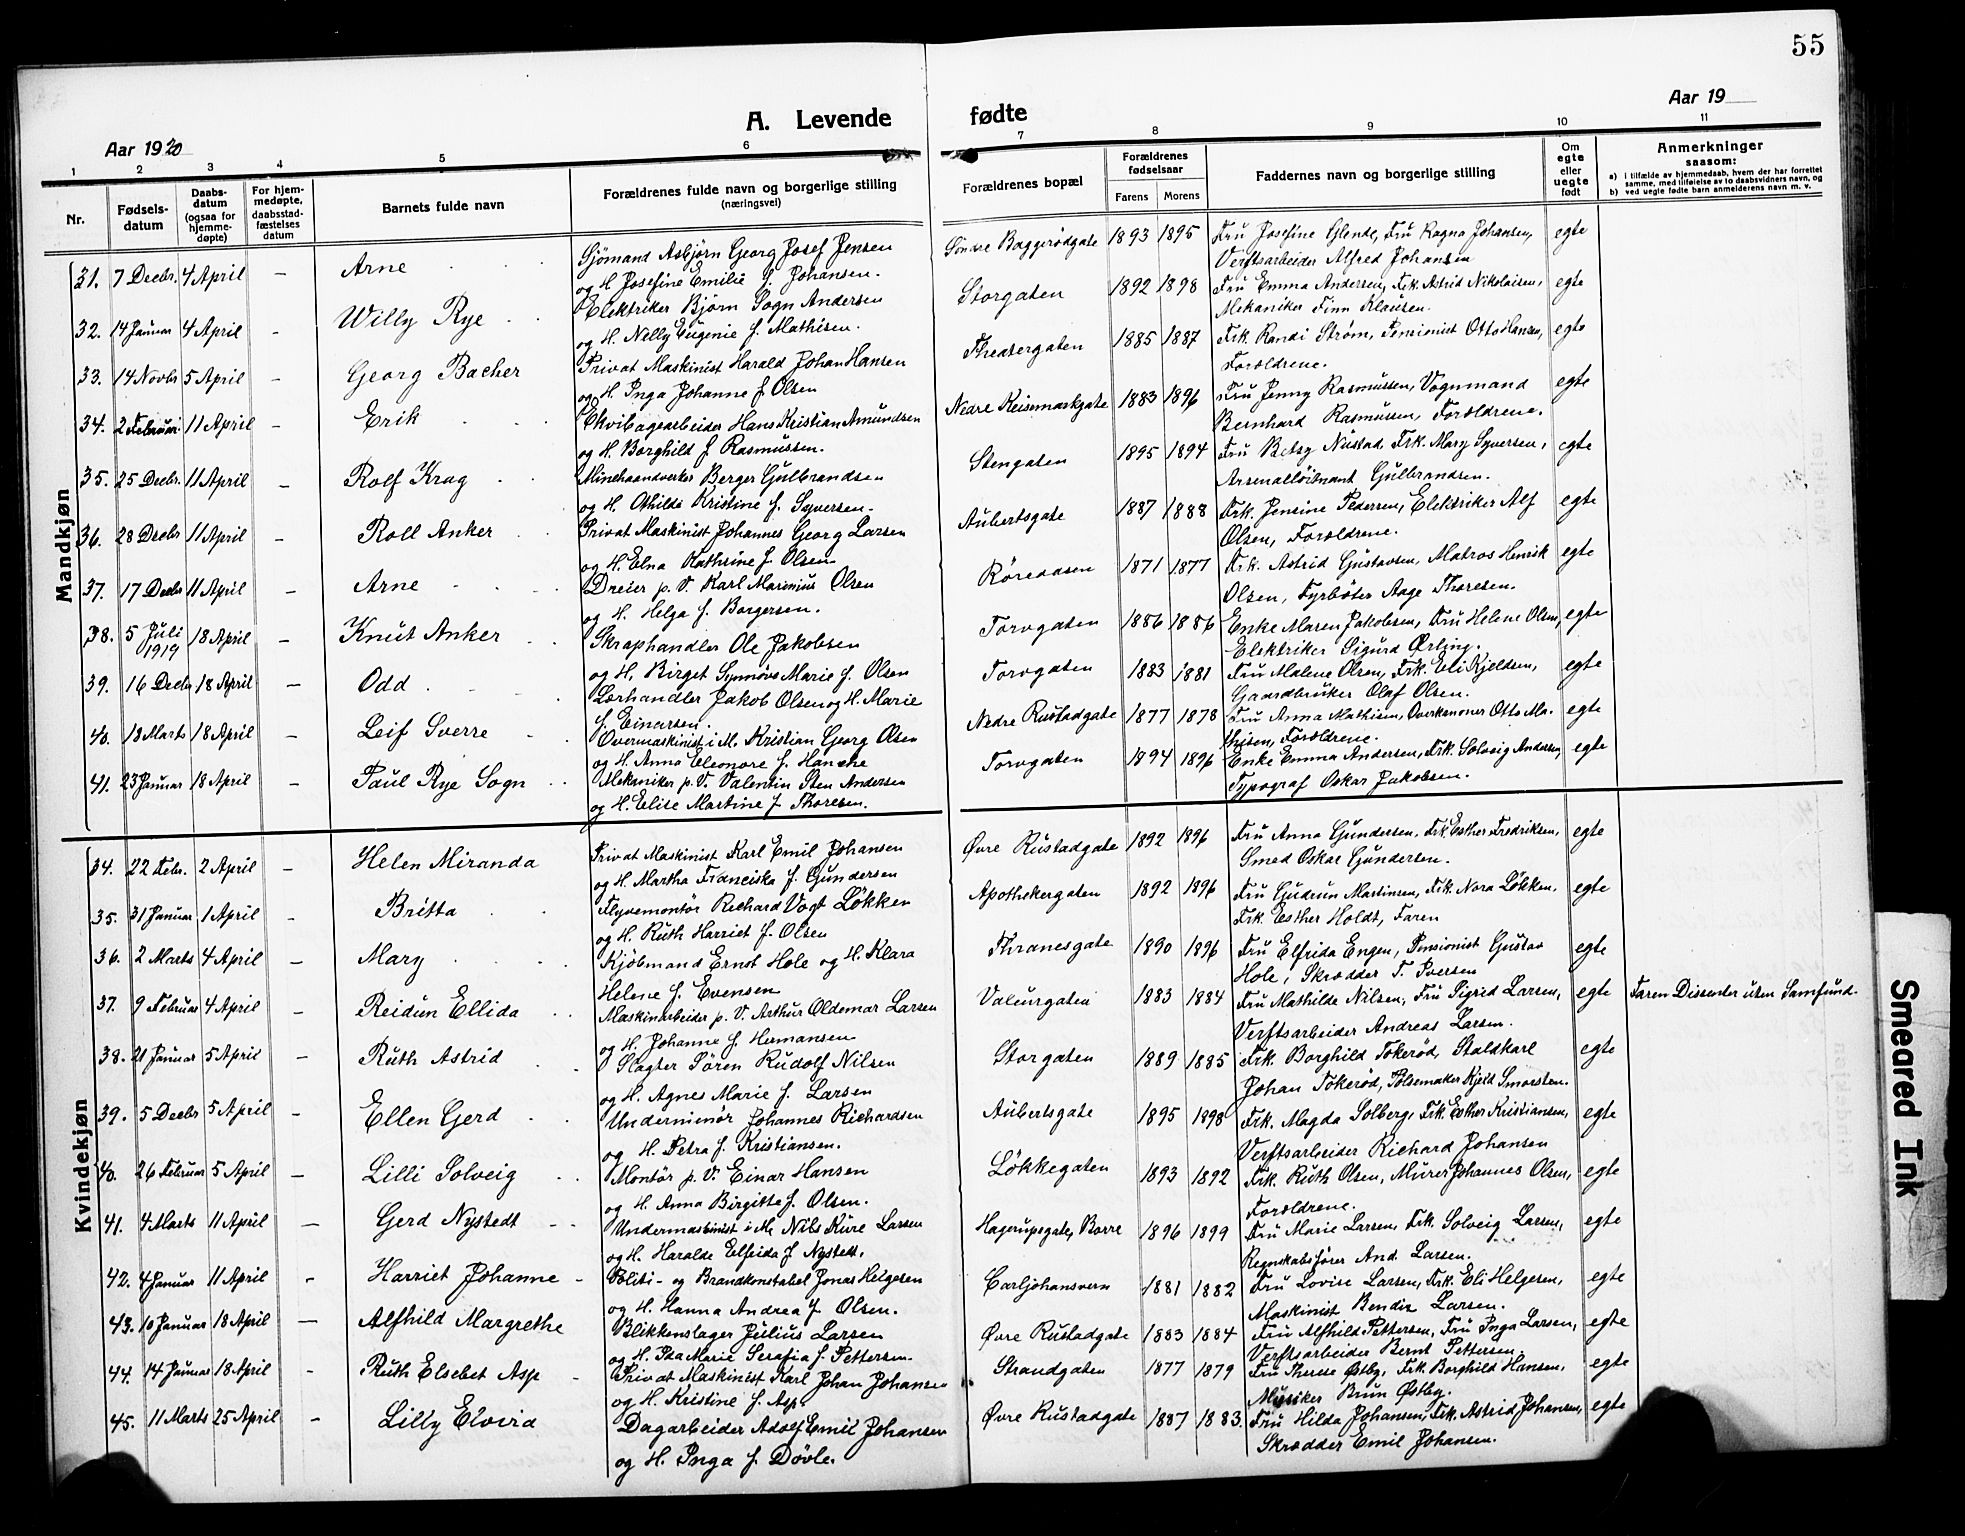 55
Aar 1920
A. Levende fødte
Aar 19
1 2 3 4 5 6 7 8 9 10 11
Nr.
Fødsels-
datum
Daabs-
datum
(ogsaa for
hjemme-
døpte)
For hjem-
medøpte,
daabsstad-
fæstelses
datum
Barnets fulde navn
Forældrenes fulde navn og borgerlige stilling
(næringsvei)
Forældrenes bopæl
Forældrenes
fødselsaar
Farens Morens
Faddernes navn og borgerlige stilling
Om
egte
eller
uegte
født
Anmerkninger
saasom:
a) i tilfælde av hjemmedaab, hvem der har forrettet
samme, med tilføielse av to daabsvidners navn, og
b) ved uegte fødte barn anmelderens navn m. v.
Mandkjøn
31. 7 Decbr. 4 April — Arne Sjømand Asbjørn Georg Josef Jensen Søndre Baggerødgate 1893 1895 Fru Josefine Glende, Fru Ragna Johansen, egte
og H. Josefine Emilie f. Johansen. Verftsarbeider Alfred Johansen
32. 14 Januar 4 April — Willy Rye Elektriker Bjørn Sogn Andersen Storgaten 1892 1898 Fru Emma Andersen, Frk. Astrid Nikolaisen, egte
og H. Nelly Eugenie f. Mathisen. Mekaniker Finn Klausen.
33. 14 Novbr 5 April — Georg Bacher Privat Maskinist Harald Johan Hansen Theatergaten 1885 1887 Frk. Randi Strøm, Pensionist Otto Hansen, egte
og H. Inga Johanne f. Olsen Forældrene.
34. 2 Februar 11 April — Erik Ekvibagearbeider Hans Kristian Amundsen Nedre Keisemarkgate 1883 1896 Fru Jenny Rasmussen, Vognmand egte
og H. Borghild f. Rasmussen. Bernhard Rasmussen, Forældrene.
35. 25 Decbr. 11 April — Rolf Krag Minehaandverker Berger Gulbrandsen Stengaten 1895 1894 Fru Betsy Nustad, Frk. Mary Syversen, egte
og H. Othilde Kristine f. Syversen. Arsenalløitnant Gulbrandsen.
36. 28 Decbr 11 April — Roll Anker Privat Maskinist Johannes Georg Larsen Aubertsgate 1887 1888 Frk. Jensine Pedersen, Elektriker Alf egte
og H. Elna Kathrine f. Olsen Olsen, Forældrene.
37. 17 Decbr 11 April — Arne Dreier p. V. Karl Marinius Olsen Røreaasen 1871 1877 Frk. Astrid Gustavsen, Matros Henrik egte
og H. Helga f. Borgersen. Olsen, Fyrbøter Aage Thoresen.
38. 5 Juli 1919 18 April — Knut Anker Skraphandler Ole Jakobsen Torvgaten 1886 1886 Enke Maren Jakobsen, Fru Helene Olsen, egte
og H. Birget Synnøve Marie f. Olsen Elektriker Sigurd Ørling.
39. 16 Decbr 18 April — Odd Lærhandler Jakob Olsen og H. Marie Torvgaten 1883 1881 Fru Malene Olsen, Frk. Eli Kjeldsen, egte
f. Einarsen. Gaardbruker Olaf Olsen.
40. 18 Marts 18 April — Leif Sverre Overmaskinist i M. Kristian Georg Olsen Nedre Rustadgate 1877 1878 Fru Anna Mathisen, Overkanoner Otto Ma- egte
og H. Anna Eleonore f. Hanche thisen, Forældrene.
41. 23 Januar 18 April — Paul Rye Sogn Mekaniker p. V. Valentin Sten Andersen Torvgaten 1894 1896 Enke Emma Andersen, Frk. Solveig Andersen, egte
og H. Elise Martine f. Thoresen. Typograf Oskar Jakobsen.
Kvindekjøn
34. 22 Febr. 2 April — Helen Miranda Privat Maskinist Karl Emil Johansen Øvre Rustadgate 1892 1896 Fru Anna Gundersen, Frk. Esther Fredriksen, egte
og H. Martha Franciska f. Gundersen Smed Oskar Gundersen.
35. 31 Januar 1 April — Britta Flyvemontør Richard Vogt Løkken Apothekergaten 1892 1896 Fru Gudrun Martinsen, Frk. Nora Løkken, egte
og H. Ruth Harriet f. Olsen Frk. Esther Holdt, Faren
36. 2 Marts 4 April — Mary Kjøbmand Ernst Hole og H. Klara Thranesgate 1890 1896 Fru Elfrida Engen, Pensionist Gustav egte
Helene f. Evensen Hole, Skrædder T. Iversen
37. 9 Februar 4 April — Reidun Ellida Maskinarbeider p. V. Arthur Oldemar Larsen Valeurgaten 1883 1884 Fru Mathilde Nilsen, Fru Sigrid Larsen, egte Faren Dissenter uten Samfund.
og H. Johanne f. Hermansen Verftsarbeider Andreas Larsen.
38. 21 Januar 5 April — Ruth Astrid Slagter Søren Rudolf Nilsen Storgaten 1889 1885 Frk. Borghild Tokerød, Staldkarl egte
og H. Agnes Marie f. Larsen Johan Tokerød, Pølsemaker Kjeld Smorsten.
39. 5 Decbr 5 April — Ellen Gerd Underminør Johannes Richardsen Aubertsgate 1895 1898 Frk. Magda Solberg, Frk. Esther Kristiansen, egte
og H. Petra f. Kristiansen. Verftsarbeider Richard Johansen
40. 26 Februar 5 April — Lilli Solveig Montør p. V. Einar Hansen Løkkegaten 1893 1892 Frk. Ruth Olsen, Murer Johannes Olsen, egte
og H. Anna Birgitte f. Olsen. Forældrene.
41. 4 Marts 11 April — Gerd Nystedt Undermaskinist i M. Nils Kure Larsen Hagerupsgate, Borre 1896 1899 Fru Marie Larsen, Frk. Solveig Larsen, egte
og H. Haralda Elfrida f. Nystedt. Regnskabsfører And. Larsen.
42. 4 Januar 11 April — Harriet Johanne Politi- og Brandkonstabel Jonas Helgesen Carljohansvern 1881 1882 Fru Lovise Larsen, Frk. Eli Helgesen, egte
og H. Hanna Andrea f. Olsen. Maskinist Bendix Larsen.
43. 10 Januar 18 April — Alfhild Margrethe Blikkenslager Julius Larsen Øvre Rustadgate 1883 1884 Fru Alfhild Pettersen, Fru Inga Larsen, egte
og H. Ida Marie Serafia f. Pettersen. Verftsarbeider Bernt Pettersen.
44. 14 Januar 18 April — Ruth Elsebet Asp Privat Maskinist Karl Johan Johansen Strandgaten 1877 1879 Fru Therese Østby, Frk. Borghild Hansen, egte
og H. Kristine f. Asp. Musiker Brun Østby.
45. 11 Marts 25 April — Lilly Elvira Dagarbeider Adolf Emil Johansen Øvre Rustadgate 1887 1883. Fru Hilda Johansen, Frk. Astrid Johansen, egte
og H. Inga f. Døvle. Skrædder Emil Johansen.
Smeared Ink